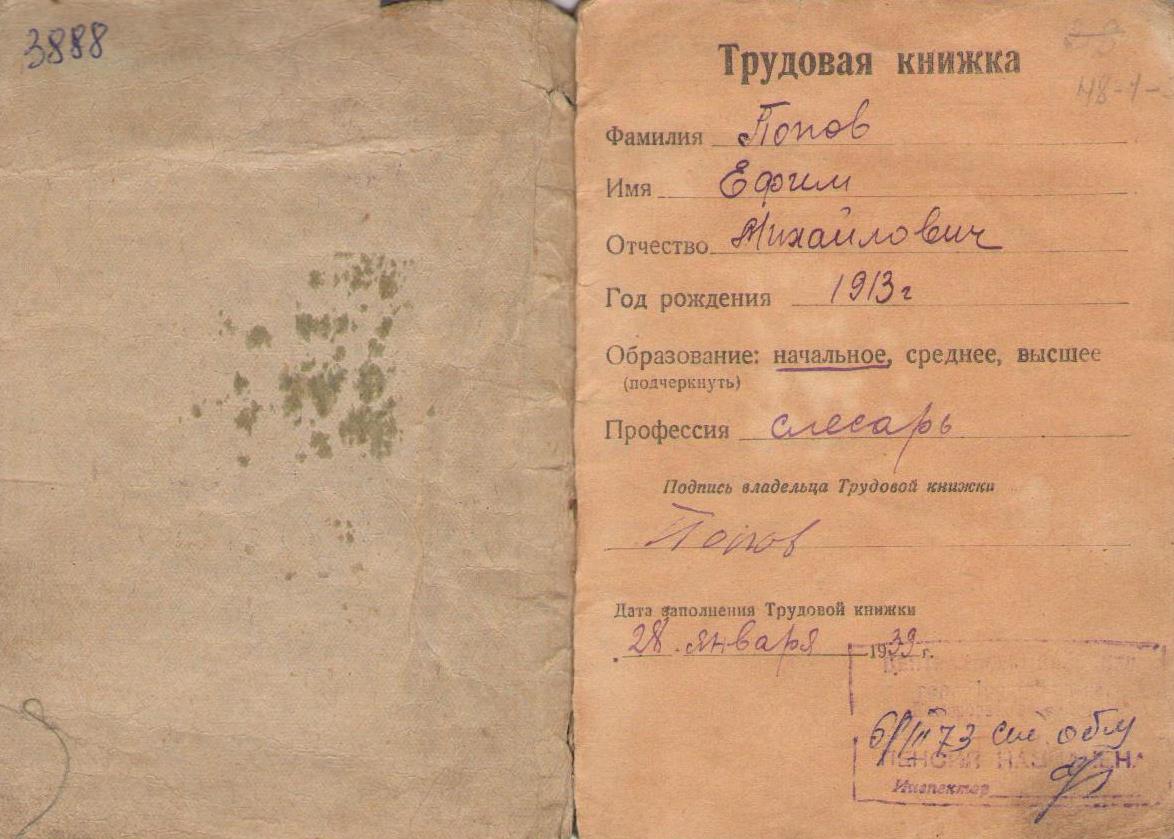 3888
Трудовая книжка
48-1-
Фамилия Попов
Имя Ефим
Отчество Михайлович
Год рождения 1913 г
Образование: начальное, среднее, высшее
(подчеркнуть)
Профессия слесарь
Подпись владельца Трудовой книжки
Попов
Дата заполнения Трудовой книжки
28 января 1939 г.
73
ПЕНСИЯ НАЗНАЧЕНА
Инспектор